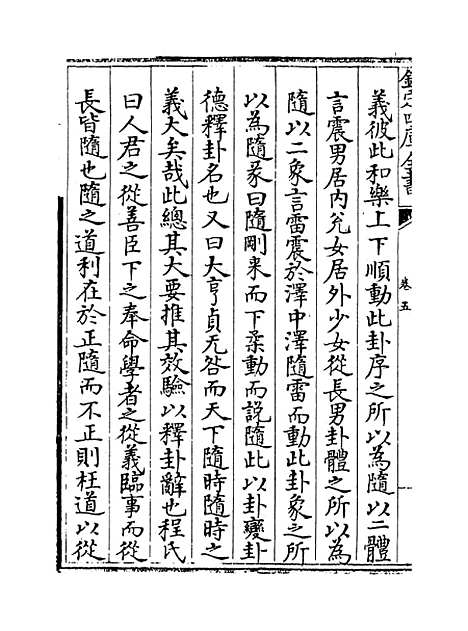 欽定四庫全書
卷五
義彼此和樂上下順動此卦序之所以為隨以二體
言震男居内兊女居外少女從長男卦體之所以為
隨以二象言雷震於澤中澤隨雷而動此卦象之所
以為隨彖曰隨剛来而下柔動而說隨此以卦變卦
德釋卦名也又曰大亨貞无咎而天下隨時隨時之
義大矣哉此總其大要推其效驗以釋卦辭也程氏
曰人君之從善臣下之奉命學者之從義臨事而從
長皆隨也隨之道利在於正隨而不正則枉道以從